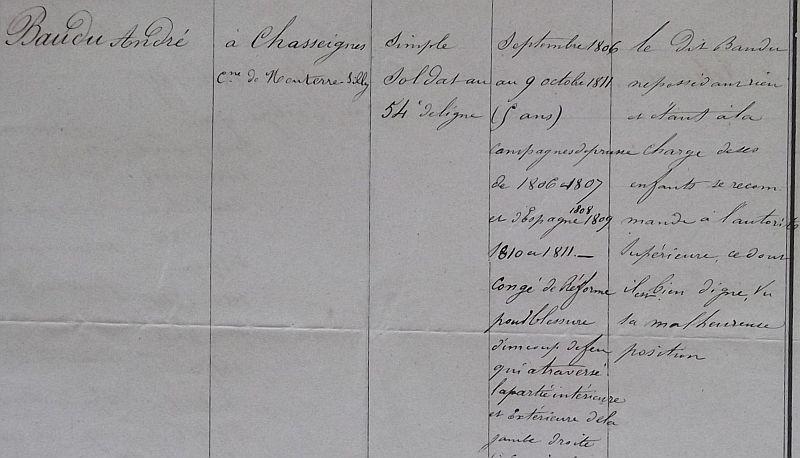 Baudu André
à Chasseignes
Cne de Mouterre-Silly
Simple
Soldat au
54e de ligne
Septembre 1806
au 9 octobre 1811
(5 ans)
Campagnes de prusse
de 1806 et 1807
et d'Espagne 1808 1809
1810 et 1811. —
Congé de Réforme
pour blessure
d'un coup de feu
qui a traversé
la partie intérieure
et Extérieure de la
jambe droite
le dit Baudu
ne possédant rien
et étant à la
charge de ses
enfants se recom
mande à l'autorité
Supérieure, ce dont
il est bien digne, Vu
sa malheureuse
position